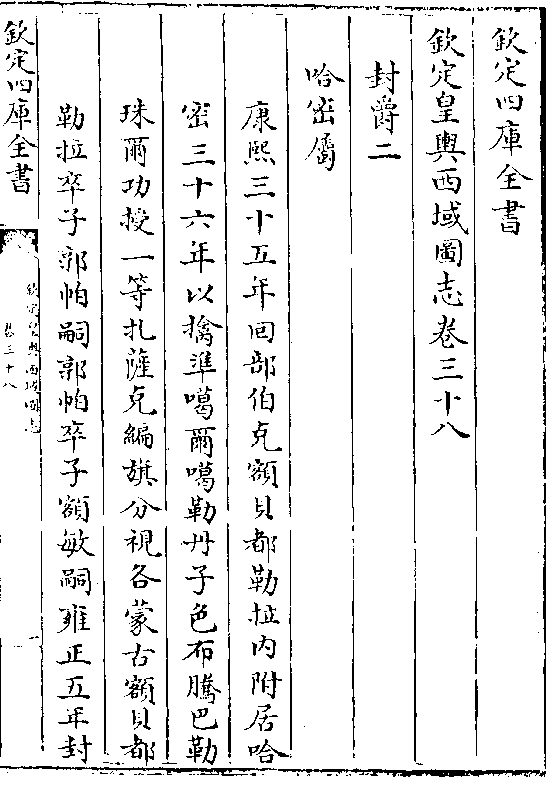 欽定四庫全書
欽定皇輿西域圖志卷三十八
封爵二
哈密屬
康熙三十五年回部伯克額貝都勒拉内附居哈
密三十六年以擒準噶爾噶勒丹子色布騰巴勒
珠爾功授一等扎薩克編旗分視各蒙古額貝都
勒拉卒子郭帕嗣郭帕卒子額敏嗣雍正五年封
欽定四庫全書
欽定皇輿西域圖志
卷三十八
一